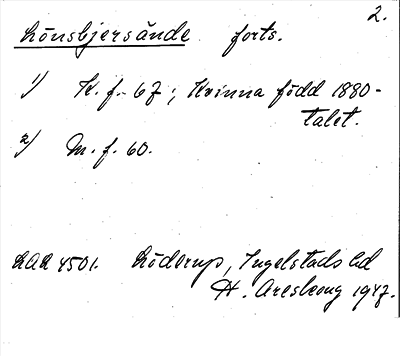 2.
Lönsbjersände forts.
1) K. f. 67; Kvinna född 1880-
talet.
2) M. f. 60.
LAA 4501. Löderup, Ingelstads hd
H. Areskoug 1947.